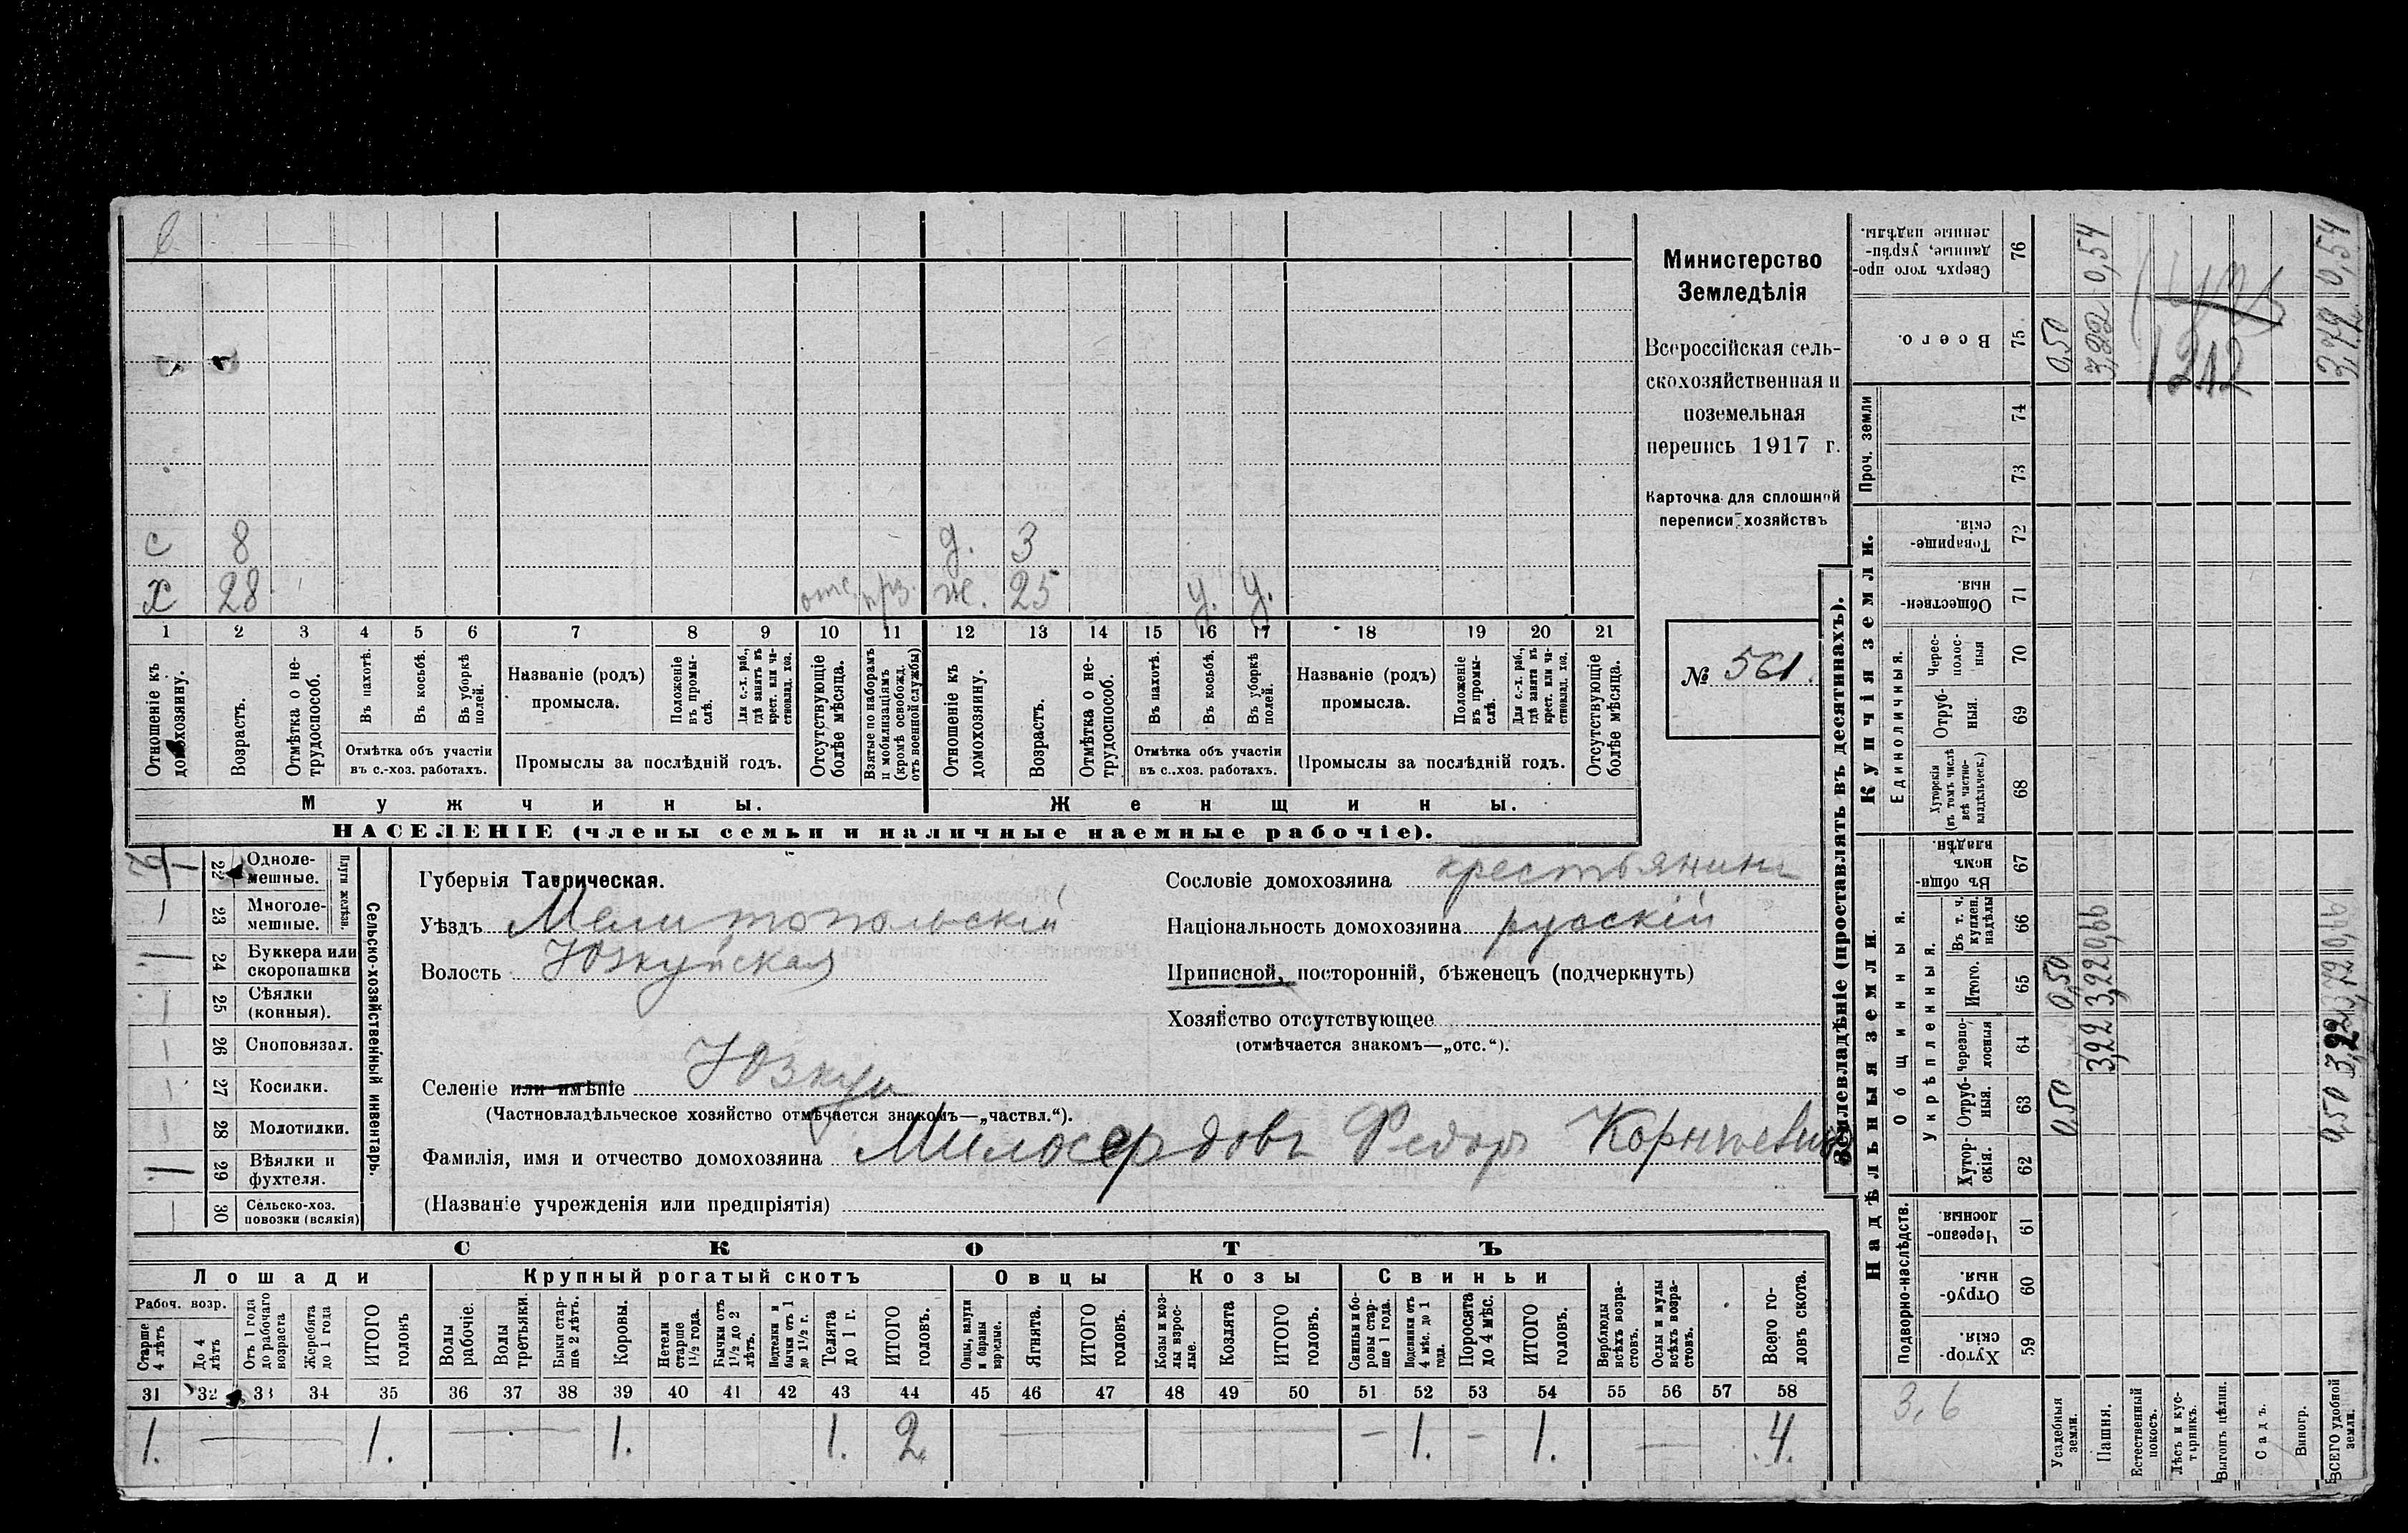 Министерство
Земледѣлія
Всероссійская сель-
скохозяйственная и
поземельная
перепись 1917 г.
Карточка для сплошной
переписи хозяйствъ
№ 561.
с 8 д. 3
х 28 отс. прз. ж. 25 у. у.
1 2 3 4 5 6 7 8 9 10 11 12 13 14 15 16 17 18 19 20 21
Отношеніе къ домохозяину.
Возрастъ.
Отмѣтка о не-трудоспособ.
Въ пахотѣ.
Въ косьбѣ.
Въ уборкѣ полей.
Отмѣтка объ участіи
въ с.-хоз. работахъ.
Названіе (родъ)
промысла.
Положеніе въ промы-слѣ.
Для с.-х. раб., гдѣ занятъ въ крест. или ча-стновлад. хоз.
Промыслы за послѣдній годъ.
Отсутствующіе болѣе мѣсяца.
Взятые по наборамъ и мобилизаціямъ (кромѣ освобожд. отъ военной службы)
Отношеніе къ домохозяину.
Возрастъ.
Отмѣтка о не-трудоспособ.
Въ пахотѣ.
Въ косьбѣ.
Въ уборкѣ полей.
Отмѣтка объ участіи
въ с.-хоз. работахъ.
Названіе (родъ)
промысла.
Положеніе въ промы-слѣ.
Для с.-х. раб., гдѣ занята въ крест. или ча-стновлад. хоз.
Промыслы за послѣдній годъ.
Отсутствующіе болѣе мѣсяца.
Мужчины. Женщины.
НАСЕЛЕНІЕ (члены семьи и наличные наемные рабочіе).
22 Одноле-мешные.
23 Многоле-мешные.
Плуги желѣзн.
24 Буккера или скоропашки
25 Сѣялки (конныя).
26 Сноповязал.
27 Косилки.
28 Молотилки.
29 Вѣялки и фухтеля.
30 Сельско-хоз. повозки (всякія)
Сельско-хозяйственный инвентарь.
Губернія Таврическая.
Уѣздъ Мелитопольскій
Волость Юзкуйская
Селеніе или имѣніе Юзкуи
(Частновладѣльческое хозяйство отмѣчается знакомъ—„частвл.“).
Фамилія, имя и отчество домохозяина Милосердовъ Федоръ Корнѣевичъ
(Названіе учрежденія или предпріятія)
Сословіе домохозяина крестьянинъ
Національность домохозяина русскій
Приписной, посторонній, бѣженецъ (подчеркнуть)
Хозяйство отсутствующее
(отмѣчается знакомъ—„отс.“).
СКОТЪ
Лошади Крупный рогатый скотъ Овцы Козы Свиньи
Рабоч. возр.
Старше 4 лѣтъ
До 4 лѣтъ
Отъ 1 года до рабочаго возраста
Жеребята до 1 года
ИТОГО головъ
Волы рабочіе.
Волы третьяки.
Быки стар-ше 2 лѣтъ.
Коровы.
Нетели старше 1½ года.
Бычки отъ 1½ до 2 лѣтъ.
Подтелки и бычки отъ 1 до 1½ г.
Телята до 1 г.
ИТОГО головъ.
Овцы, валухи и бараны взрослые.
Ягнята.
ИТОГО головъ.
Козы и коз-лы взрос-лые.
Козлята
ИТОГО головъ.
Свиньи и бо-ровы стар-ше 1 года.
Подсвинки отъ 4 мѣс. до 1 года.
Поросята до 4 мѣс.
ИТОГО головъ.
Верблюды всѣхъ возра-стовъ.
Ослы и мулы всѣхъ возра-стовъ.
Всего го-ловъ скота.
31 32 33 34 35 36 37 38 39 40 41 42 43 44 45 46 47 48 49 50 51 52 53 54 55 56 57 58
1. — 1. — 1. 1. 2 — — — 1. — 1. — 4.
Землевладѣніе (проставлять въ десятинахъ).
Надѣльныя земли.
Купчія земли.
Проч. земли
Подворно-наслѣдств.
Общинныя.
Укрѣпленныя.
Единоличныя.
Хутор-скія. 59
Отруб-ныя. 60
Черезпо-лосныя. 61
Хутор-скія. 62
Отруб-ныя. 63
Черезпо-лосныя 64
Итого. 65
Въ т. ч. куплен. надѣлы 66
Въ общи-номъ владѣн. 67
Хуторскія (въ томъ числѣ всѣ частно-владѣльческ.) 68
Отруб-ныя. 69
Черес-полос-ныя 70
Обществен-ныя. 71
Товарище-скія. 72
73
74
Всего. 75
Сверхъ того про-данные, укрѣп-ленные надѣлы. 76
3,6
Усадебныя земли. 0,50 0,50 0,50
Пашня. 3,22 3,22 0,66 3,22 0,54
Естественный покосъ.
Лѣсъ и кус-тарникъ.
Выгонъ цѣлин.
Садъ.
Виногр.
ВСЕГО удобной земли. 0,50 3,22 3,72 0,66 3,72 0,54
1212